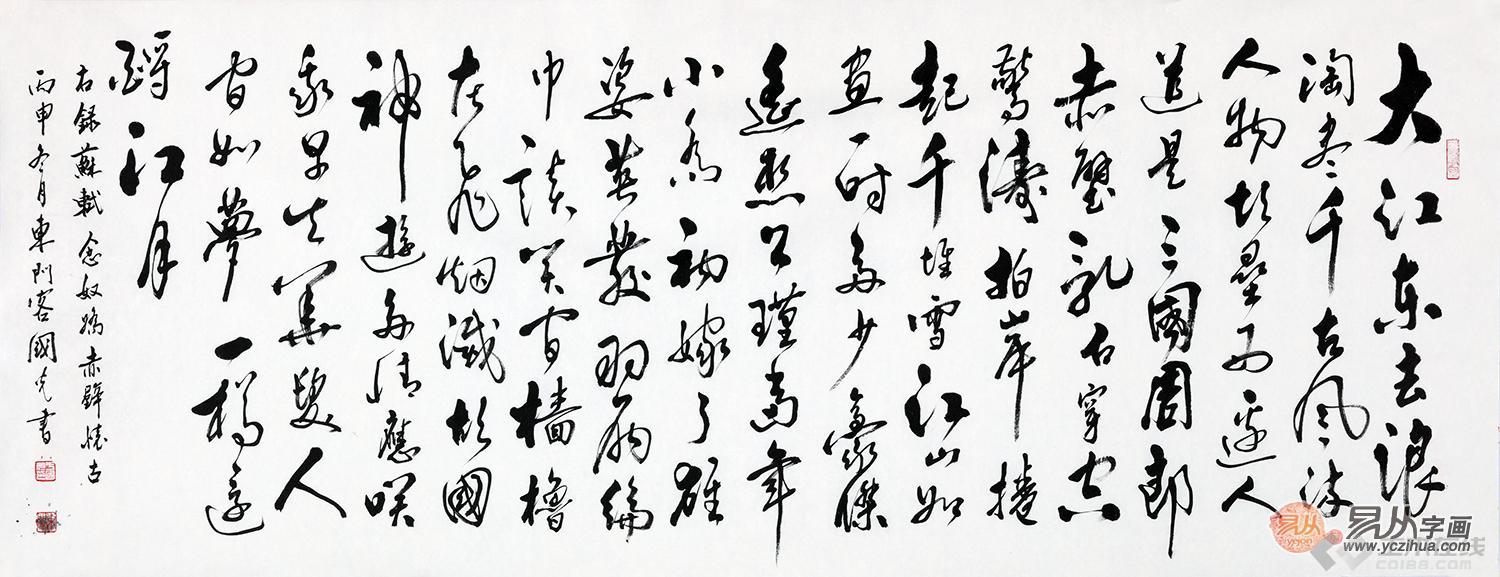 大江东去浪
淘尽千古风流
人物故垒西边人
道是三國周郎
赤壁乱石穿空
驚濤拍岸捲
起千堆雪江山如
画一时多少豪傑
遥想公瑾當年
小乔初嫁了雄
姿英發羽扇纶
巾談笑间檣櫓
灰飞烟滅故國
神遊多情應笑
我早生華髮人
间如夢一樽還
酹江月
右録蘇軾念奴嬌赤壁懷古
丙申冬月東門客國克書
易从字画
www.yczihua.com
易从
yejon